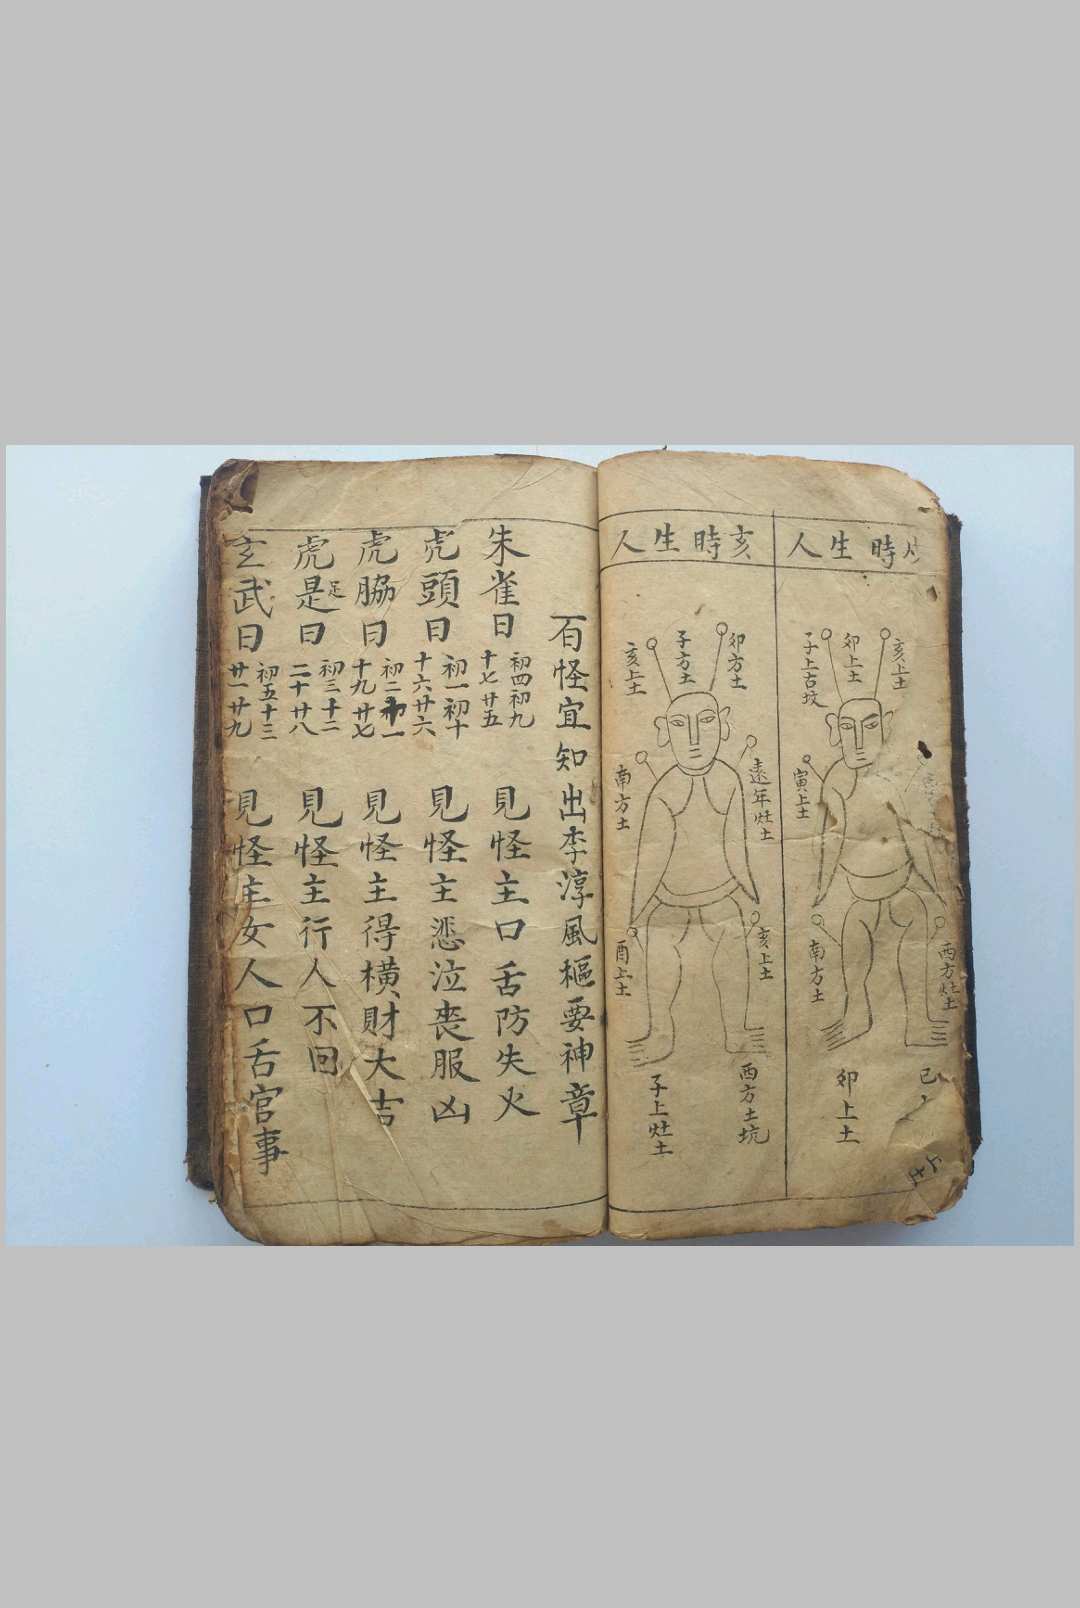 時生人
亥上土
卯上土
子上古坟
寅上土
南方土
西方灶土
卯上土
巳
上土
亥時生人
卯方土
子方土
亥上土
遠年灶土
南方土
亥上土
酉上土
西方土坑
子上灶土
百怪宜知出李淳風樞要神章
朱雀日 初四初九 十七廿五 見怪主口舌防失火
虎頭日 初一初十 十六廿六 見怪主悲泣喪服凶
虎脇日 初二 十九廿七 見怪主得橫財大吉
虎是足日 初三十二 二十廿八 見怪主行人不回
玄武日 初五十三 廿一廿九 見怪主女人口舌官事